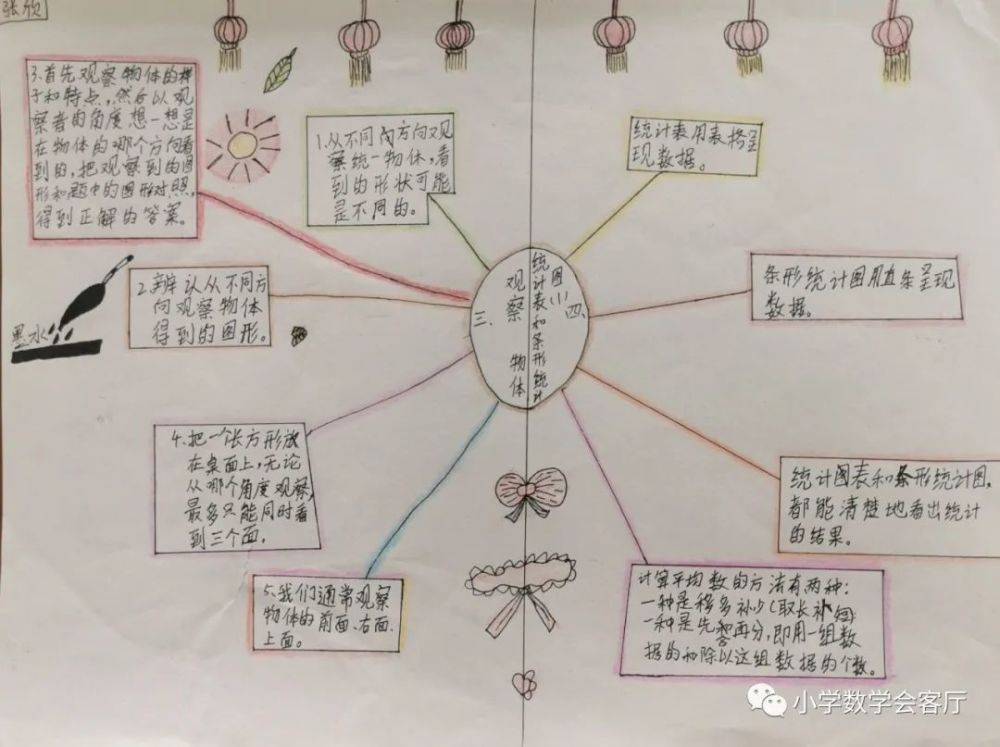 张欣
3.首先观察物体的样
子和特点,然后以观
察者的角度想一想是
在物体的哪个方向看
到的,把观察到的图
形和题中的图形对照,
得到正解的答案。
1.从不同的方向观
察统一物体,看
到的形状可能
是不同的。
统计表用表格呈
现数据。
2.辨认从不同方
向观察物体
得到的图形。
墨水
三、观察物体
四、统计表和条形统计
图(一)
条形统计图用直条呈现
数据。
4.把一个长方形放
在桌面上,无论
从哪个角度观察,
最多只能同时看
到三个面。
统计图表和条形统计图,
都能清楚地看出统计
的结果。
5.我们通常观察
物体的前面、右面、
上面。
计算平均数的方法有两种:
一种是移多补少(取长补短
一种是先合再分,即用一组数
据的和除以这组数据的个数。
小学数学会客厅